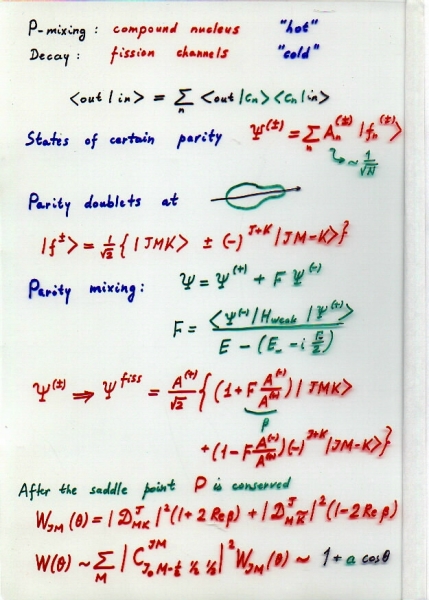 P-mixing : compound nucleus "hot"
Decay : fission channels "cold"
<out | in> = Σ_n <out | c_n> <c_n | in>
States of certain parity Ψ^(±) = Σ_n A_n^(±) | f_n^(±)>
~ 1/√N
Parity doublets at
|f^±> = 1/√2 { | JMK> ± (-)^{J+K} | JM-K> }
Parity mixing : Ψ = Ψ^(+) + F Ψ^(-)
F = <Ψ^(-) | H_weak | Ψ^(+)> / E - (E_- - i Γ/2)
Ψ^(±) ⇒ Ψ^fiss = A^(+)/√2 { (1 + F A^(-)/A^(+)) | JMK>
β
+ (1 - F A^(-)/A^(+)) (-)^{J+K} | JM-K> }
After the saddle point P is conserved
W_JM (θ) = | D^J_MK |^2 (1 + 2 Re β) + | D^J_M-K |^2 (1 - 2 Re β)
W(θ) ~ Σ_M | C^{JM}_{J_0 M-½ ½ ½} |^2 W_JM (θ) ~ 1 + a cos θ